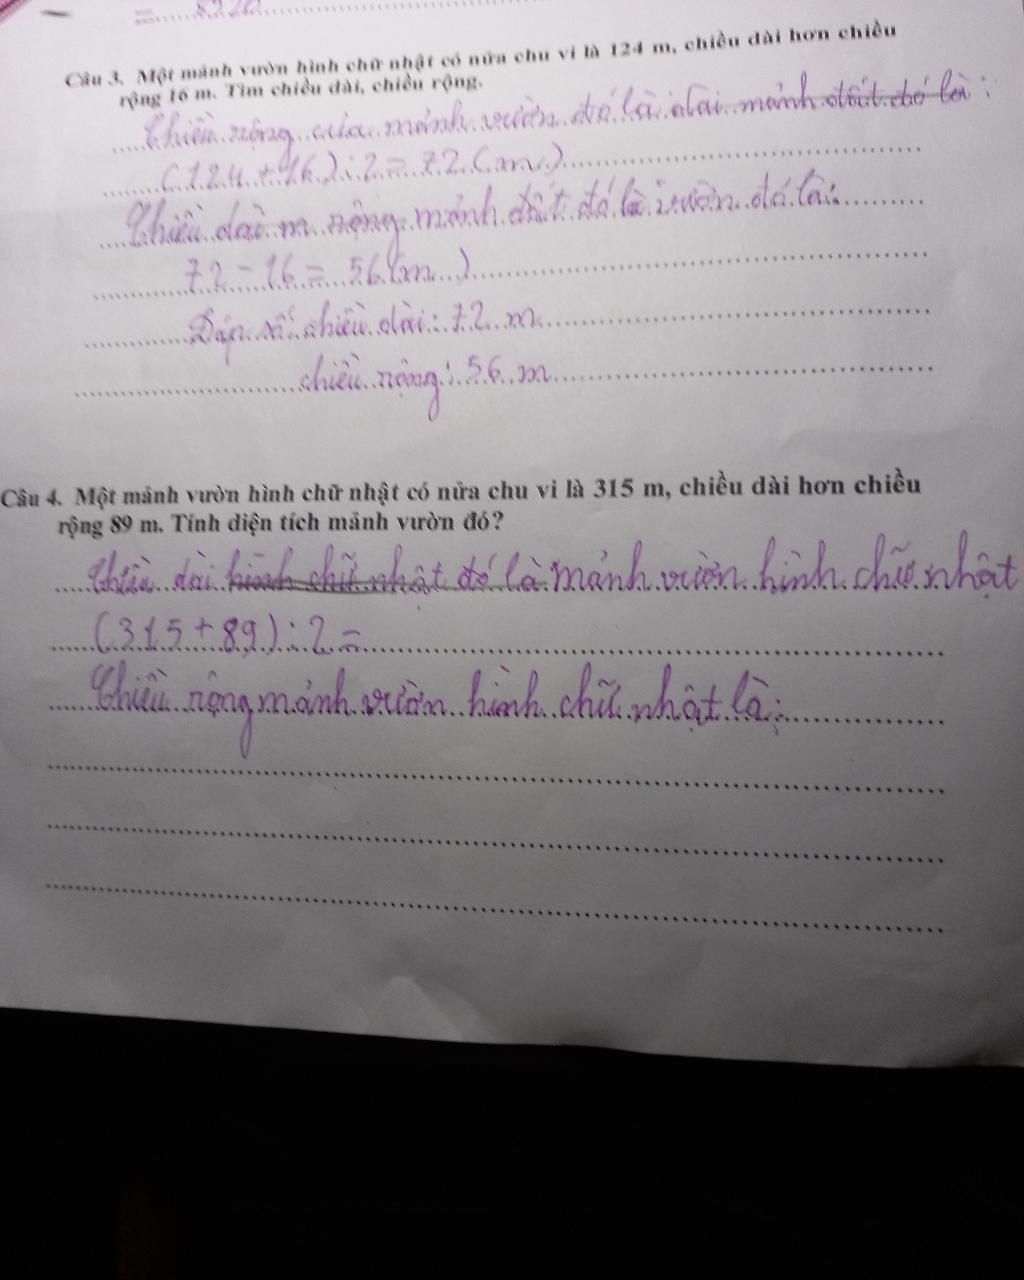 = 8220
Câu 3. Một mảnh vườn hình chữ nhật có nửa chu vi là 124 m, chiều dài hơn chiều
rộng 16 m. Tìm chiều dài, chiều rộng.
Chiều rộng của mảnh vườn đó là dài mảnh đất đó là:
(124 + 16) : 2 = 72 (m)
Chiều dài m rộng mảnh đất đó là vườn đó là:
72 - 16 = 56 (m)
Đáp số chiều dài: 72 m
chiều rộng: 56 m
Câu 4. Một mảnh vườn hình chữ nhật có nửa chu vi là 315 m, chiều dài hơn chiều
rộng 89 m. Tính diện tích mảnh vườn đó?
Chiều dài hình chữ nhật đó là mảnh vườn hình chữ nhật
(315 + 89) : 2 =
Chiều rộng mảnh vườn hình chữ nhật là: